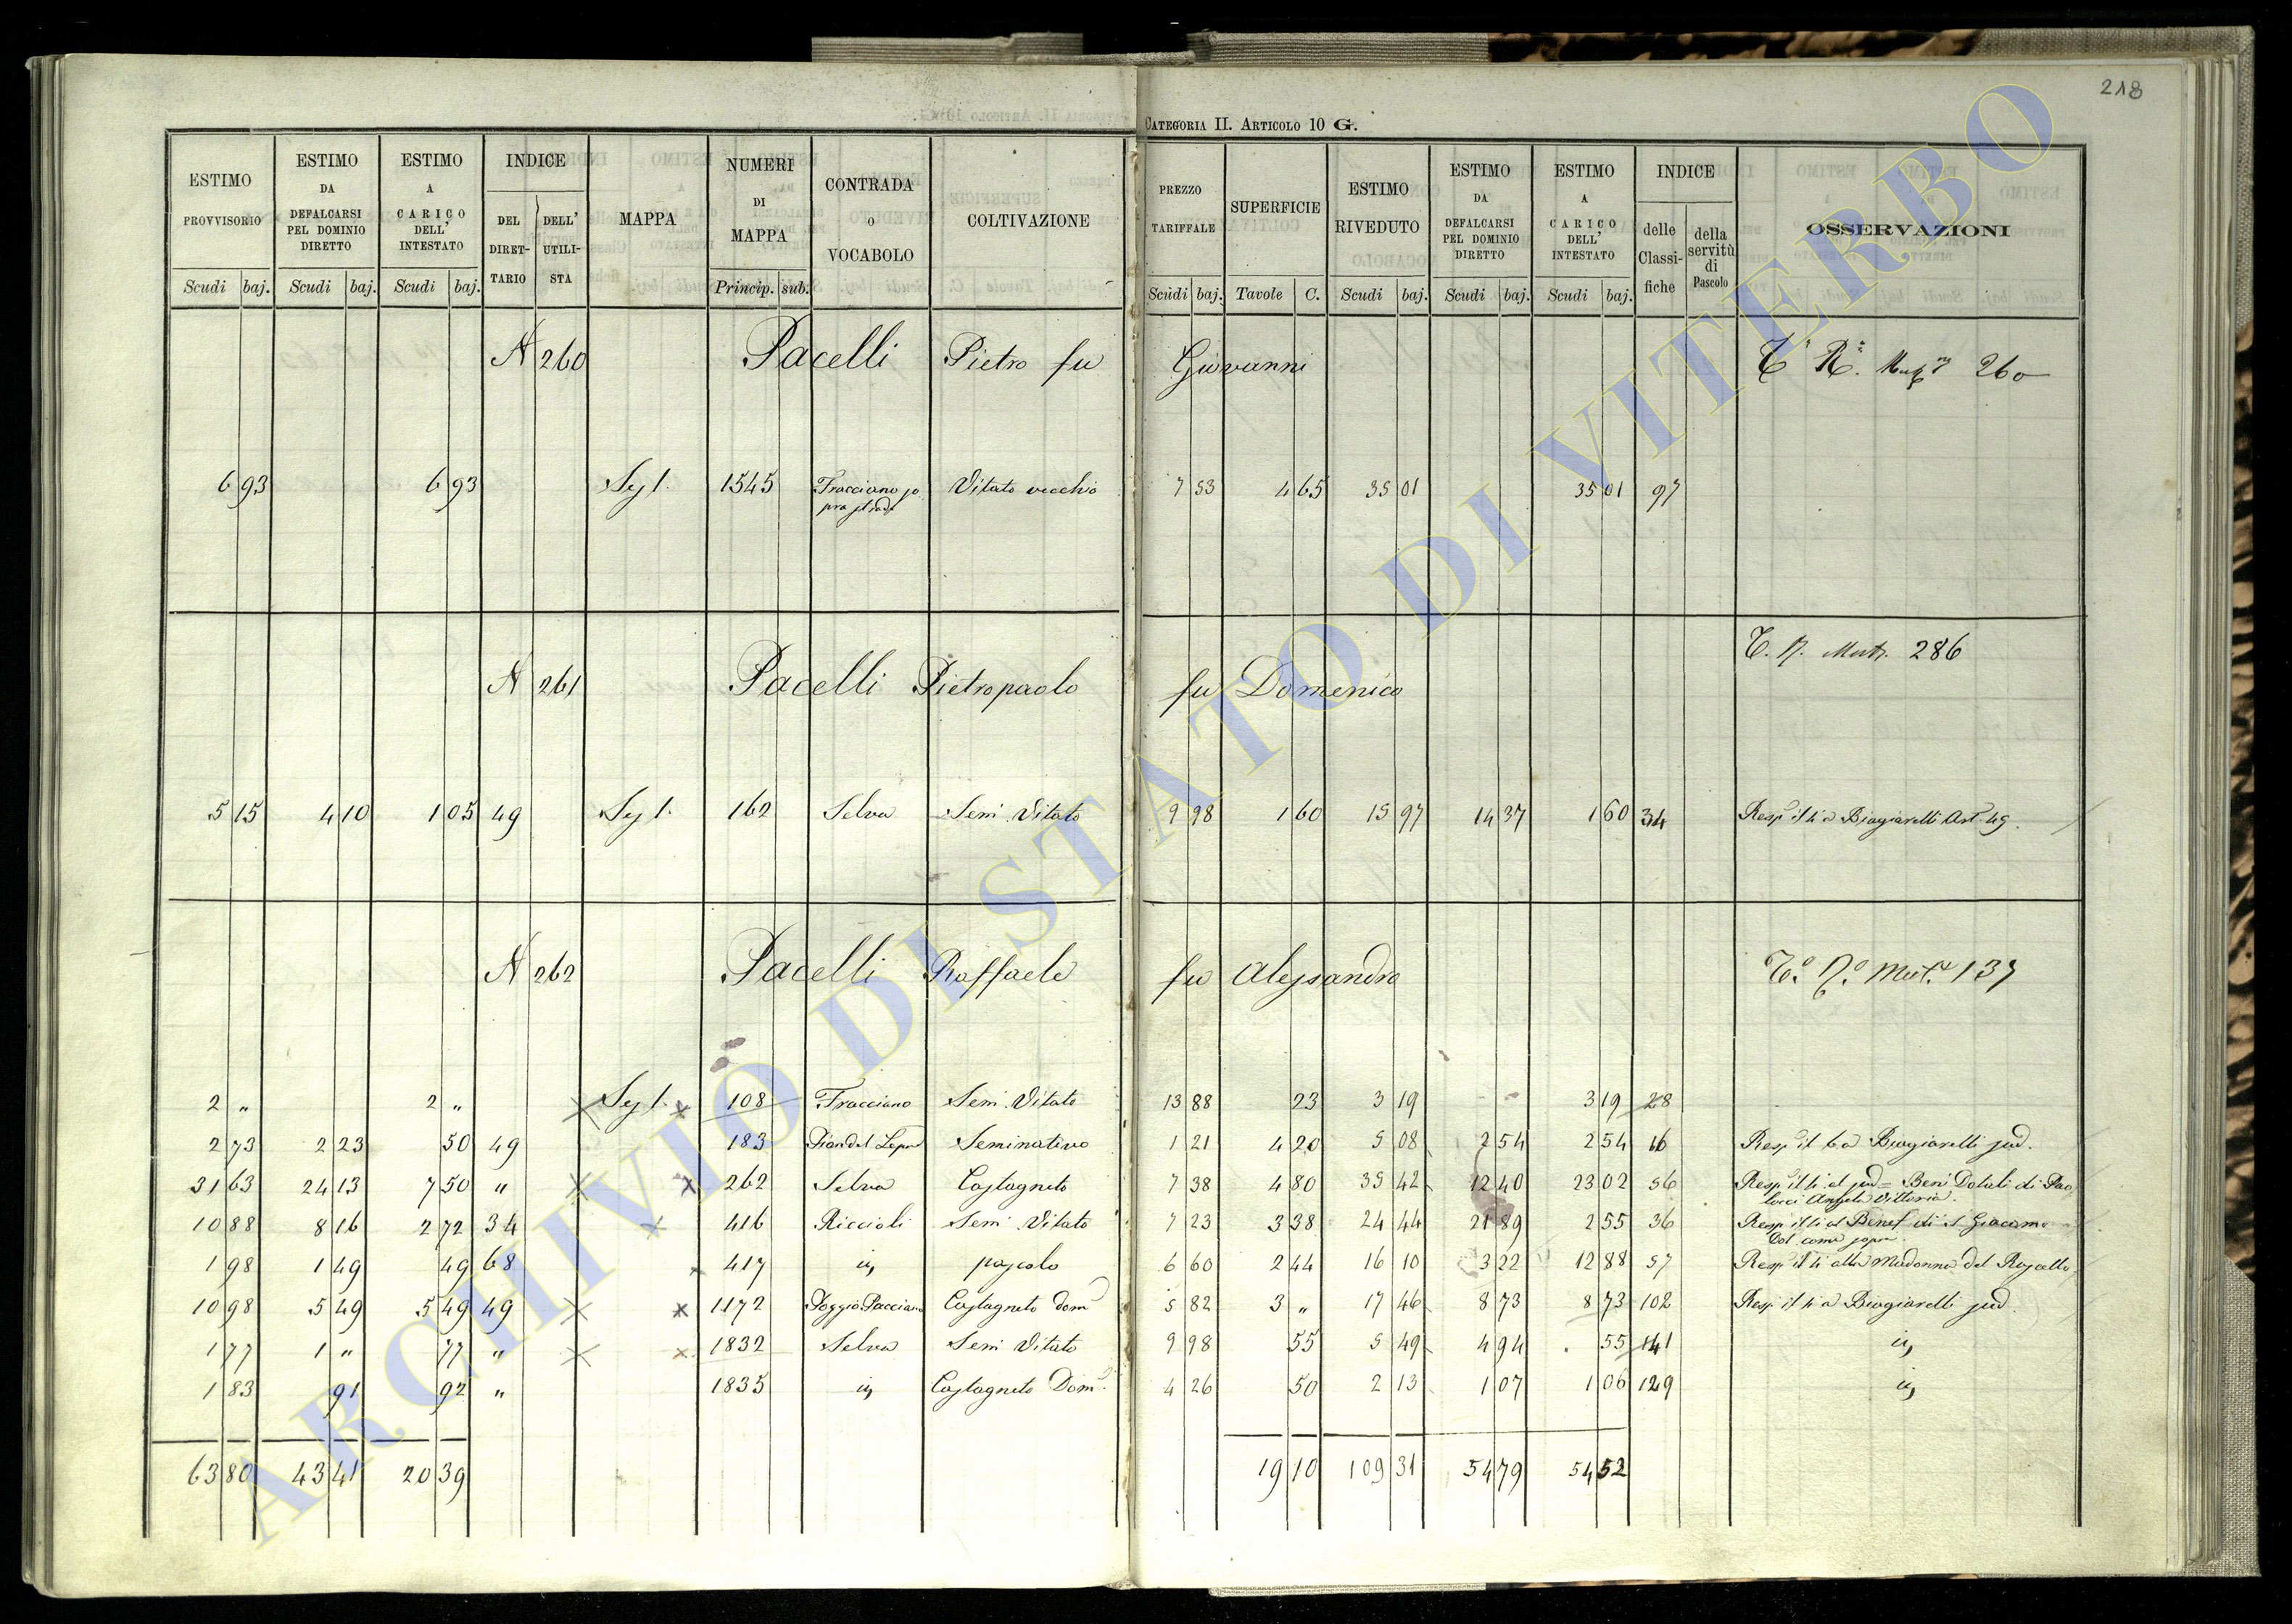 218
CATEGORIA II. ARTICOLO 10 G.
ESTIMO PROVVISORIO Scudi baj. ESTIMO DA DEFALCARSI PEL DOMINIO DIRETTO Scudi baj. ESTIMO A CARICO DELL' INTESTATO Scudi baj. INDICE DEL DIRET-TARIO DELL' UTILI-STA MAPPA NUMERI DI MAPPA Princip. sub. CONTRADA O VOCABOLO COLTIVAZIONE PREZZO TARIFFALE Scudi baj. SUPERFICIE Tavole C. ESTIMO RIVEDUTO Scudi baj. ESTIMO DA DEFALCARSI PEL DOMINIO DIRETTO Scudi baj. ESTIMO A CARICO DELL' INTESTATO Scudi baj. INDICE delle Classi-fiche della servitù di Pascolo OSSERVAZIONI
N 260 Pacelli Pietro fu Giovanni 260
6 93 6 93 Sez 1. 1545 Fracciano so pra strada Vitato vecchio 7 53 4 65 35 01 35 01 97
N 261 Pacelli Pietropaolo fu Domenico 286
5 15 4 10 1 05 49 Sez 1. 162 Selva Semi. Vitato 9 98 1 60 15 97 14 37 1 60 34 Resp il ¼ a Biagiarelli Art. 49.
N 262 Pacelli Raffaele fu Alessandro 137
2 " 2 " Sez 1. 108 Fracciano Semi. Vitato 13 88 23 3 19 3 19 28
2 73 2 23 50 49 183 Seminativo 1 21 4 20 5 08 2 54 2 54 16 Resp il a Biagiarelli sud.
31 63 24 13 7 50 " 262 Selva Castagneto 7 38 4 80 35 42 12 40 23 02 56 Resp il ¼ al sud - Beni Dotali di Pao
lucci Angela Vittoria.
10 88 8 16 2 72 34 416 Riccioli Semi. Vitato 7 23 3 38 24 44 21 89 2 55 36 Resp il ¼ al Benef. di S Giacomo
Dot. come sopra.
1 98 1 49 49 68 417 id pascolo 6 60 2 44 16 10 3 22 12 88 57 Resp il ¼ alla Madonna del
10 98 5 49 5 49 49 1172 Poggio Pacciano Castagneto dom 5 82 3 " 17 46 8 73 8 73 102 Resp il ¼ a Biagiarelli sud.
1 77 1 " 77 " 1832 Selva Semi Vitato 9 98 55 5 49 4 94 55 141 id
1 83 91 92 " 1835 id Castagneto Dom. 4 26 50 2 13 1 07 1 06 129 id
63 80 43 41 20 39 19 10 109 31 54 79 54 52
ARCHIVIO DI STATO DI VITERBO